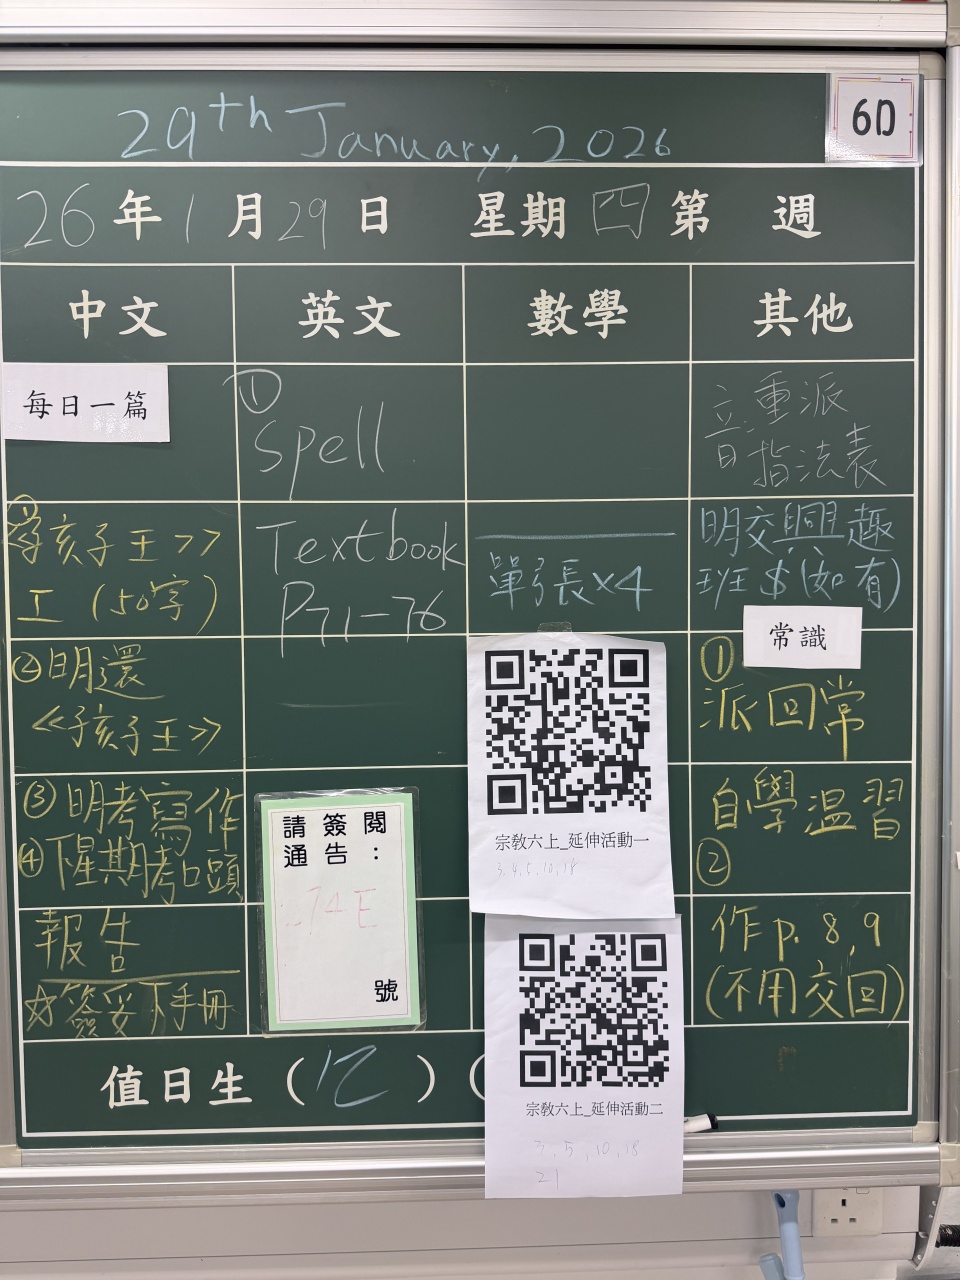 29th January, 2026
6D
26年1月29日 星期四第 週
中文 英文 數學 其他
每日一篇
①
孩子王>>
工（50字）
②明還
<<孩子王>>
③明考寫作
④下星期考口頭
報告
☆簽妥下手冊
①
Spell
Textbook
P71-76
請簽閱
通告：
74E
號
單張×4
宗教六上_延伸活動一
3,4,5,10,18
宗教六上_延伸活動二
3,5,10,18
21
音重派
指法表
明交興趣
班$(如有)
常識
①
派回常
自學溫習
②
作p.8,9
(不用交回)
值日生（
）（